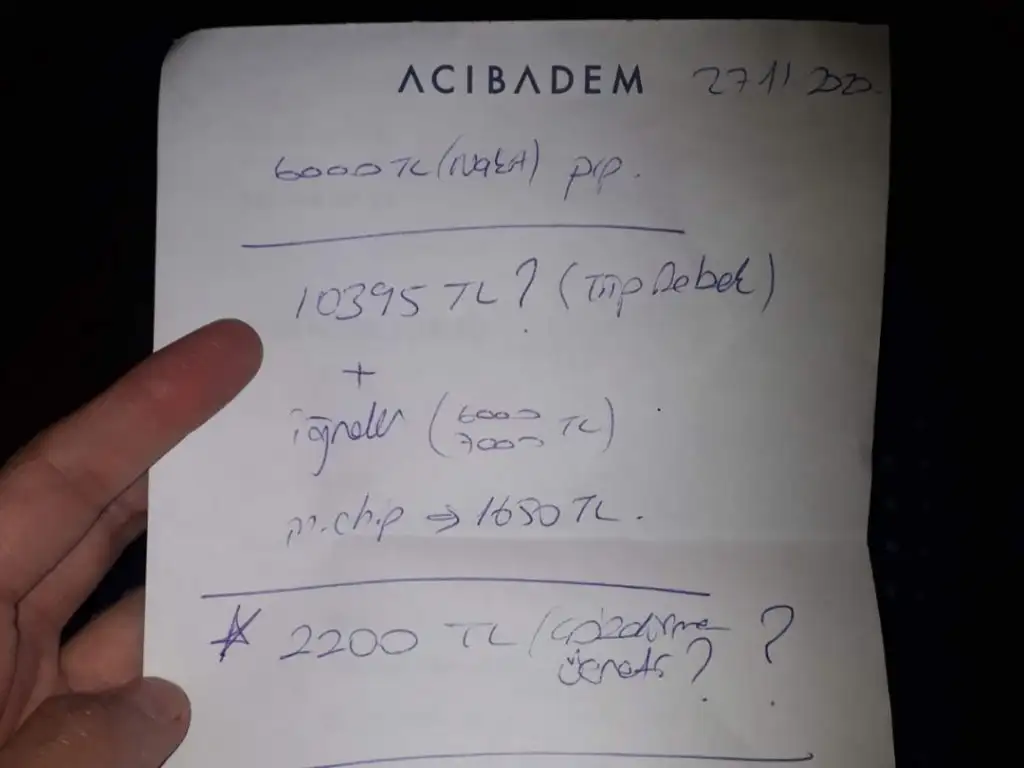 ACIBADEM 27 11 2020.
6000 TL (NAKİT) prp.
10395 TL? (Tüp Bebek)
+
iğneler (6000 7000 TL)
m.chip ⇒ 1650 TL.
* 2200 TL (çözdürme ?
ücreti?